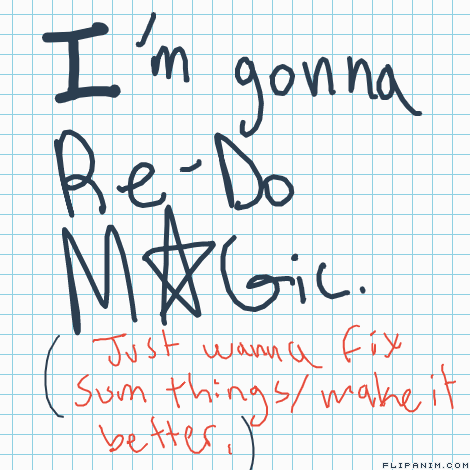 I'm gonna
Re-Do
M☆Gic.
(Just wanna fix
sum things/make it
better.)
FLIPANIM.COM